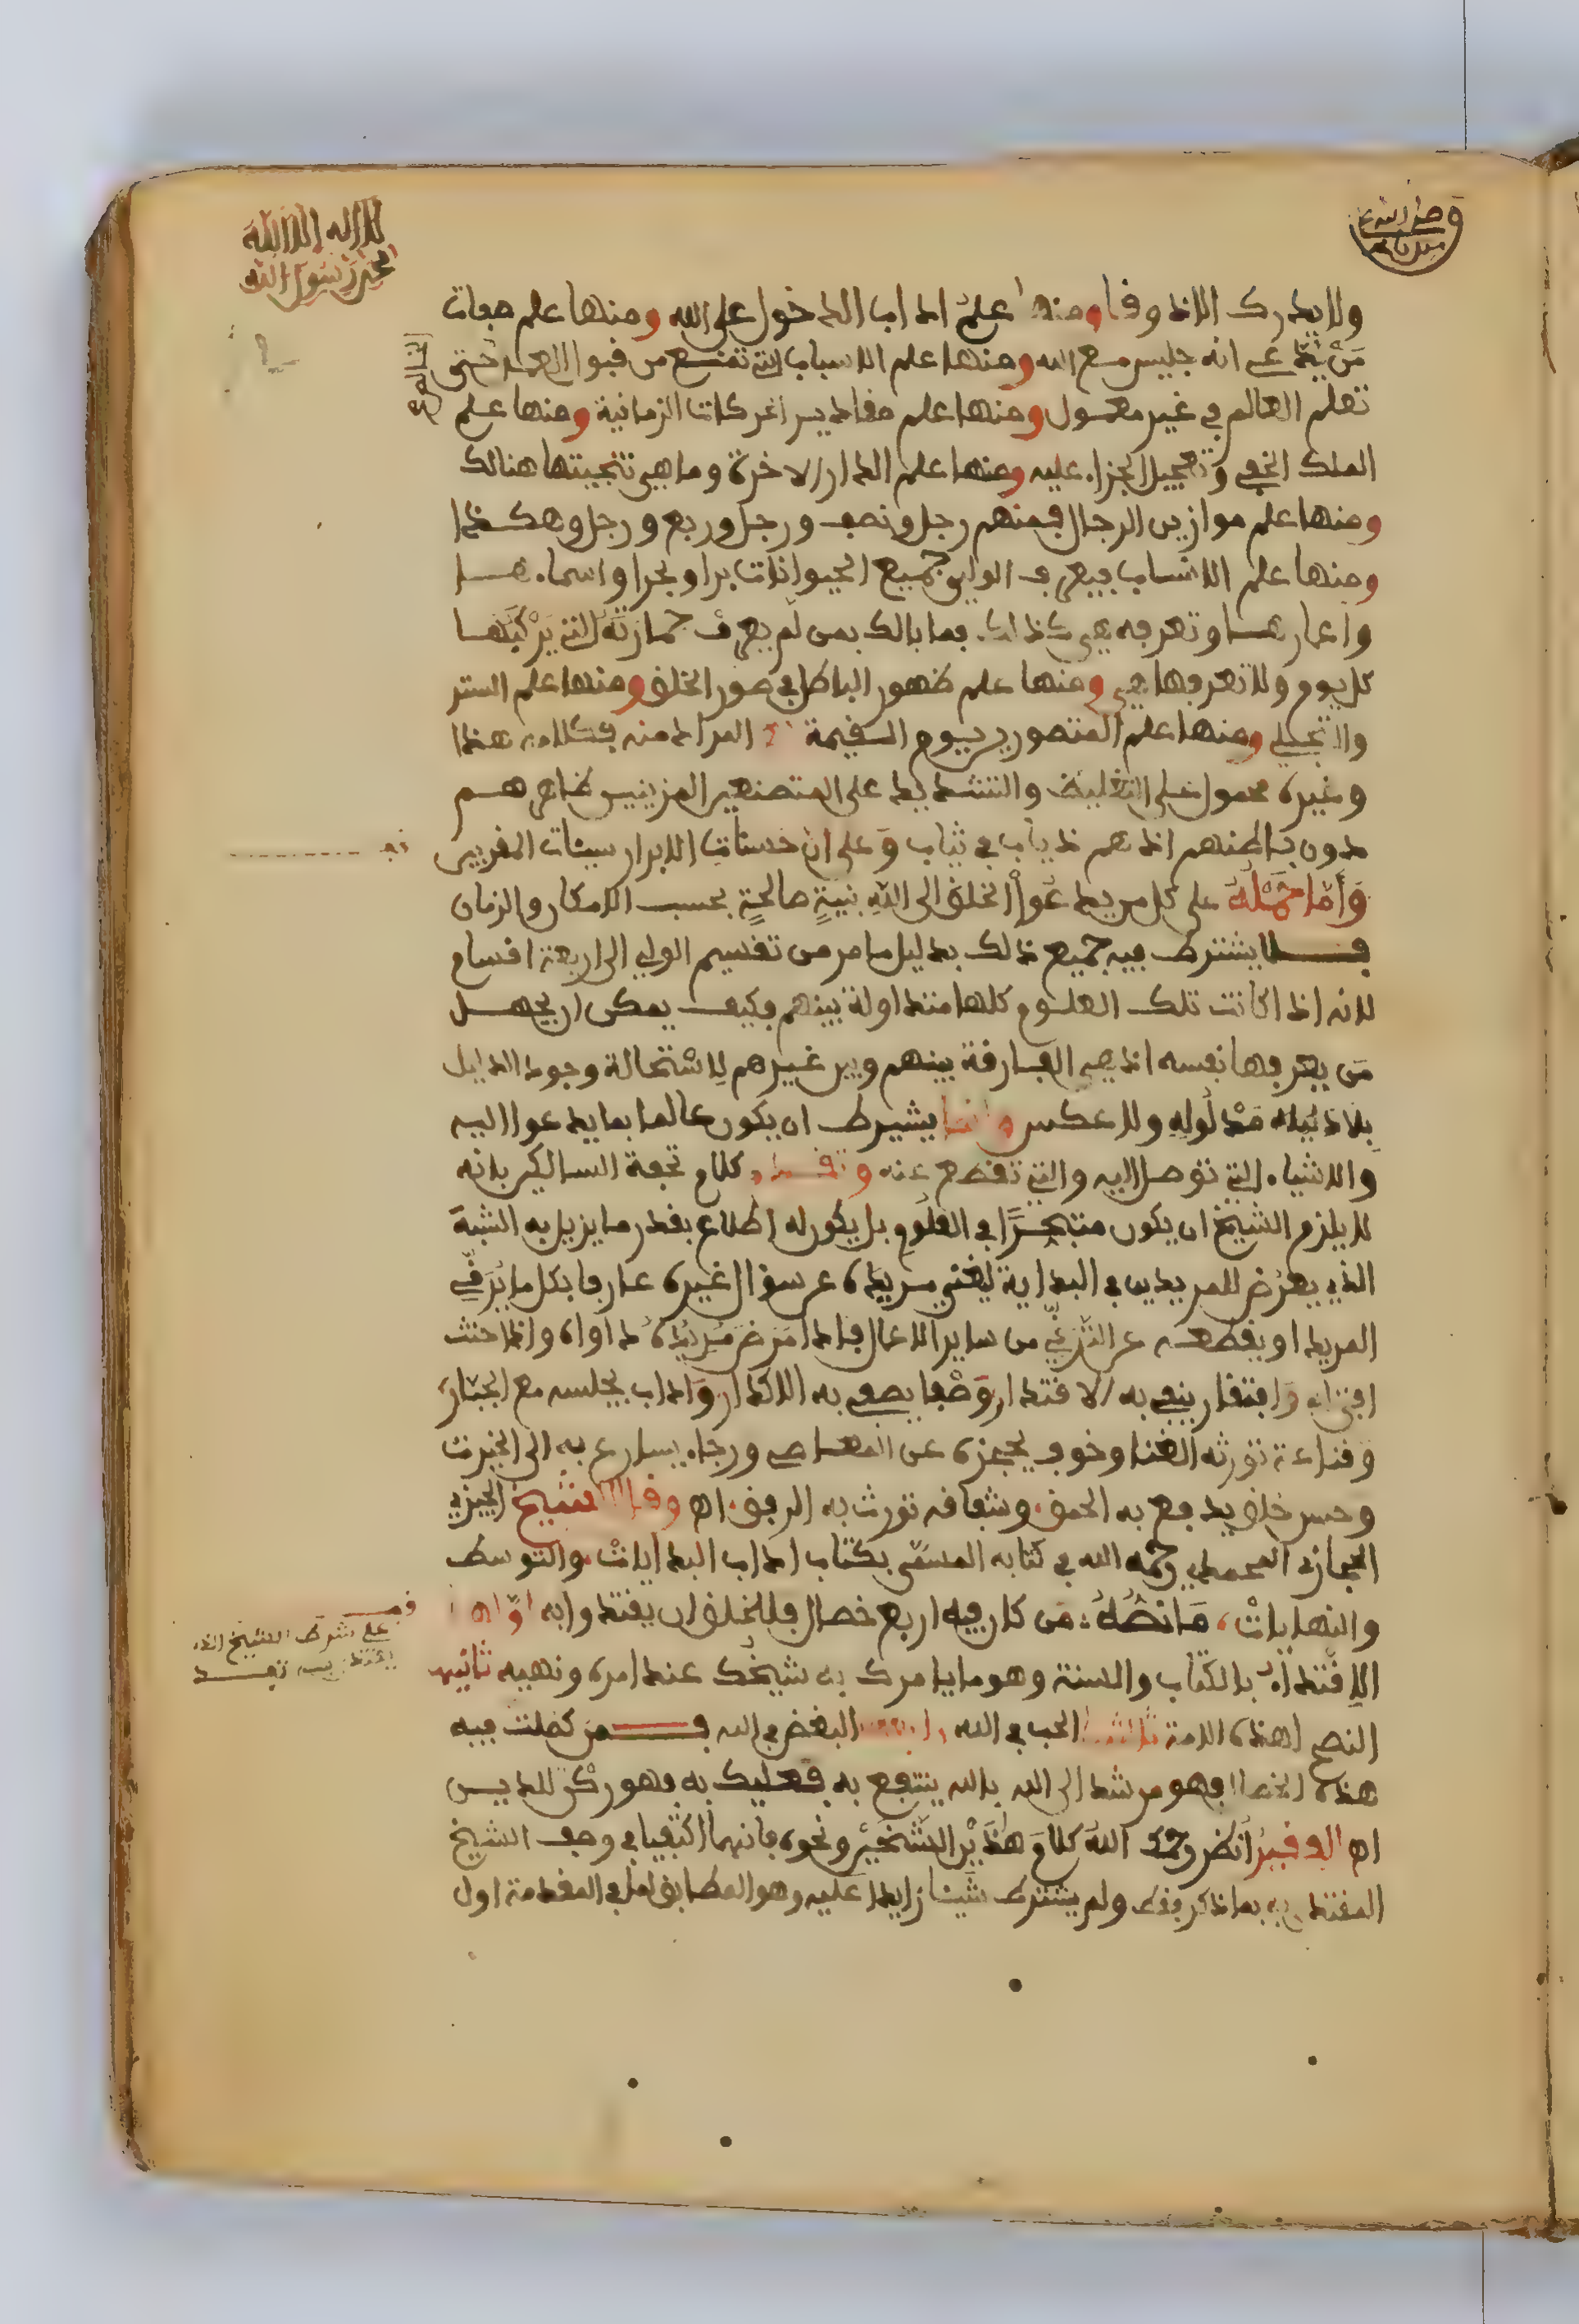 لا اله الا الله
محمد رسول الله
ولا يدرك الا ذوفا ومنها علم اداب الدخول على الله ومنها علم صفات
من يدعى انه جليس مع الله ومنها علم الاسباب التي تمنع من قبول العمل حتى
تعلم العالم في غير معمول ومنها علم مقادير الحركات الزمانية ومنها علم
الملك الخفي وتعجيل الجزاء عليه ومنها علم الدار الاخرة وما هي نتيجتها هنالك
ومنها علم موازين الرجال فمنهم رجل ونصف ورجل وربع ورجل وهكذا
ومنها علم الانساب فيعرف الولي جميع الحيوانات برا وبحرا واسماءها
واعمارها وتعرفه هي كذلك فما بالك بمن لم يعرف حمارته التي يركبها
كل يوم ولا تعرفها هي ومنها علم ظهور الباطل في صور الخلق ومنها علم الستر
والتجلي ومنها علم المتصورين يوم القيمة المراد منه فكلامه هذا
وغيره محمول على التغليظ والتشديد على المتصنعين المزينين ظاهرهم
دون باطنهم اذ هم ذياب في ثياب وعلى ان حسنات الابرار سيئات المقربين
وأما حمله على كل مريد دعوا الخلق الى الله بنية صالحة بحسب الامكان والزمان
فلا يشترط فيه جميع ذلك بدليل ما مر من تقسيم الولي الى اربعة اقسام
لانه اذا كانت تلك العلوم كلها متداولة بينهم فكيف يمكن ان يجهل
من يعرفها نفسه اذ هي الفارقة بينهم وبين غيرهم لاستحالة وجود الدليل
بلا مدلوله ولا عكس وانما يشترط ان يكون عالما بما يدعوا اليه
والاشياء التي توصل اليه والتي تقطع عنه وتقدم كلام تحفة السالكين بانه
لا يلزم الشيخ ان يكون متبحرا في العلوم بل يكون له اطلاع بقدر ما يزيل به الشبه
الذي يعرض للمريدين في البداية ليغني مريده عن سؤال غيره عارفا بكل ما يرقي
المريد او يقطعه عن الترقي من ساير الاعمال فاذا مرض مريده داواه واذا حنث
افتاه وافتقار ينفي به الاقتدار وصفا يصفي به الاكدار واداب يجلسه مع الجبار
وقناعة تورثه الغنا وخوف يحجزه عن المعاصي ورجاء يسارع به الى الخيرات
وحسن خلق يدفع به الحمق وشفافه تورث به الرفق اه وقال الشيخ الجيزي
الحجازي المحمدي رحمه الله في كتابه المسمى بكتاب اداب البدايات والتوسط
والنهايات ما نصه من كان فيه اربع خصال فللخلق ان يقتدوا به اولاها
الاقتداء بالكتاب والسنة وهو ما يامرك به شيخك عند امره ونهيه ثانيها
النصح لهذه الامة ثالثها الحب في الله رابعها البغض في الله فمن كملت فيه
هذه الخصال فهو مرشد الى الله بالله ينتفع به فعليك به فهو ركن للدين
اه الوفير أنظر رحمك الله كلام هذين الشيخين ونحوه فانهما اكتفيا في وصف الشيخ
المقتدى به بما ذكر فقط ولم يشترط شيئا زايدا عليه وهو المطابق لما في المقدمة اول
قف
على شرط الشيخ الذي
يقتدى به